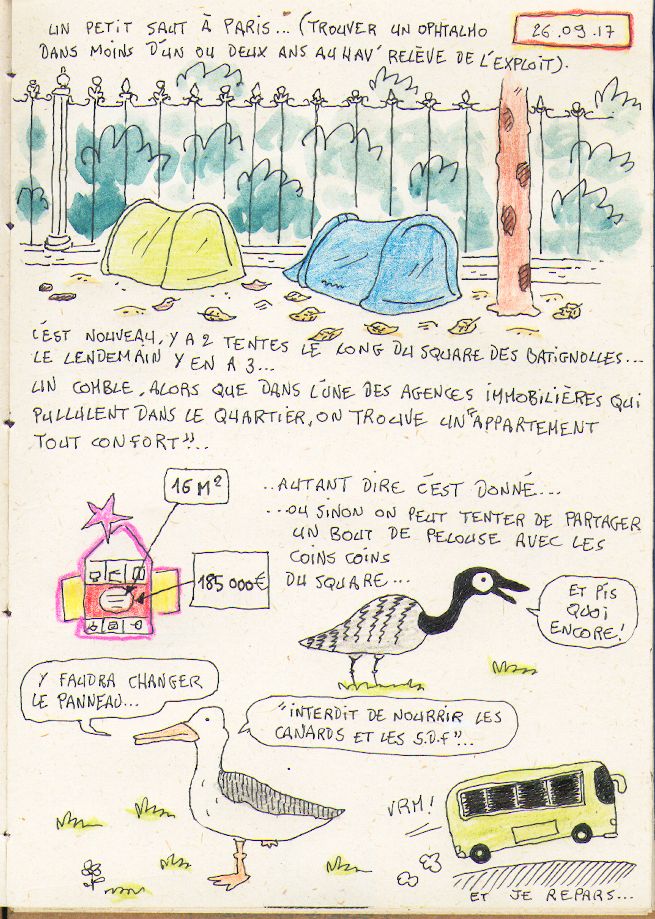 UN PETIT SAUT À PARIS... (TROUVER UN OPHTALMO
26.09.17
DANS MOINS D'UN OU DEUX ANS AU HAV' RELÈVE DE L'EXPLOIT).
C'EST NOUVEAU, Y A 2 TENTES LE LONG DU SQUARE DES BATIGNOLLES...
LE LENDEMAIN Y EN A 3...
UN COMBLE, ALORS QUE DANS L'UNE DES AGENCES IMMOBILIÈRES QUI
PULLULENT DANS LE QUARTIER, ON TROUVE UN "APPARTEMENT
TOUT CONFORT"...
16 M²
185 000€
..AUTANT DIRE C'EST DONNÉ...
...OU SINON ON PEUT TENTER DE PARTAGER
UN BOUT DE PELOUSE AVEC LES
COINS COINS
DU SQUARE...
ET PIS
QUOI
ENCORE!
Y FAUDRA CHANGER
LE PANNEAU...
"INTERDIT DE NOURRIR LES
CANARDS ET LES S.D.F"...
VRM!
ET JE REPARS...